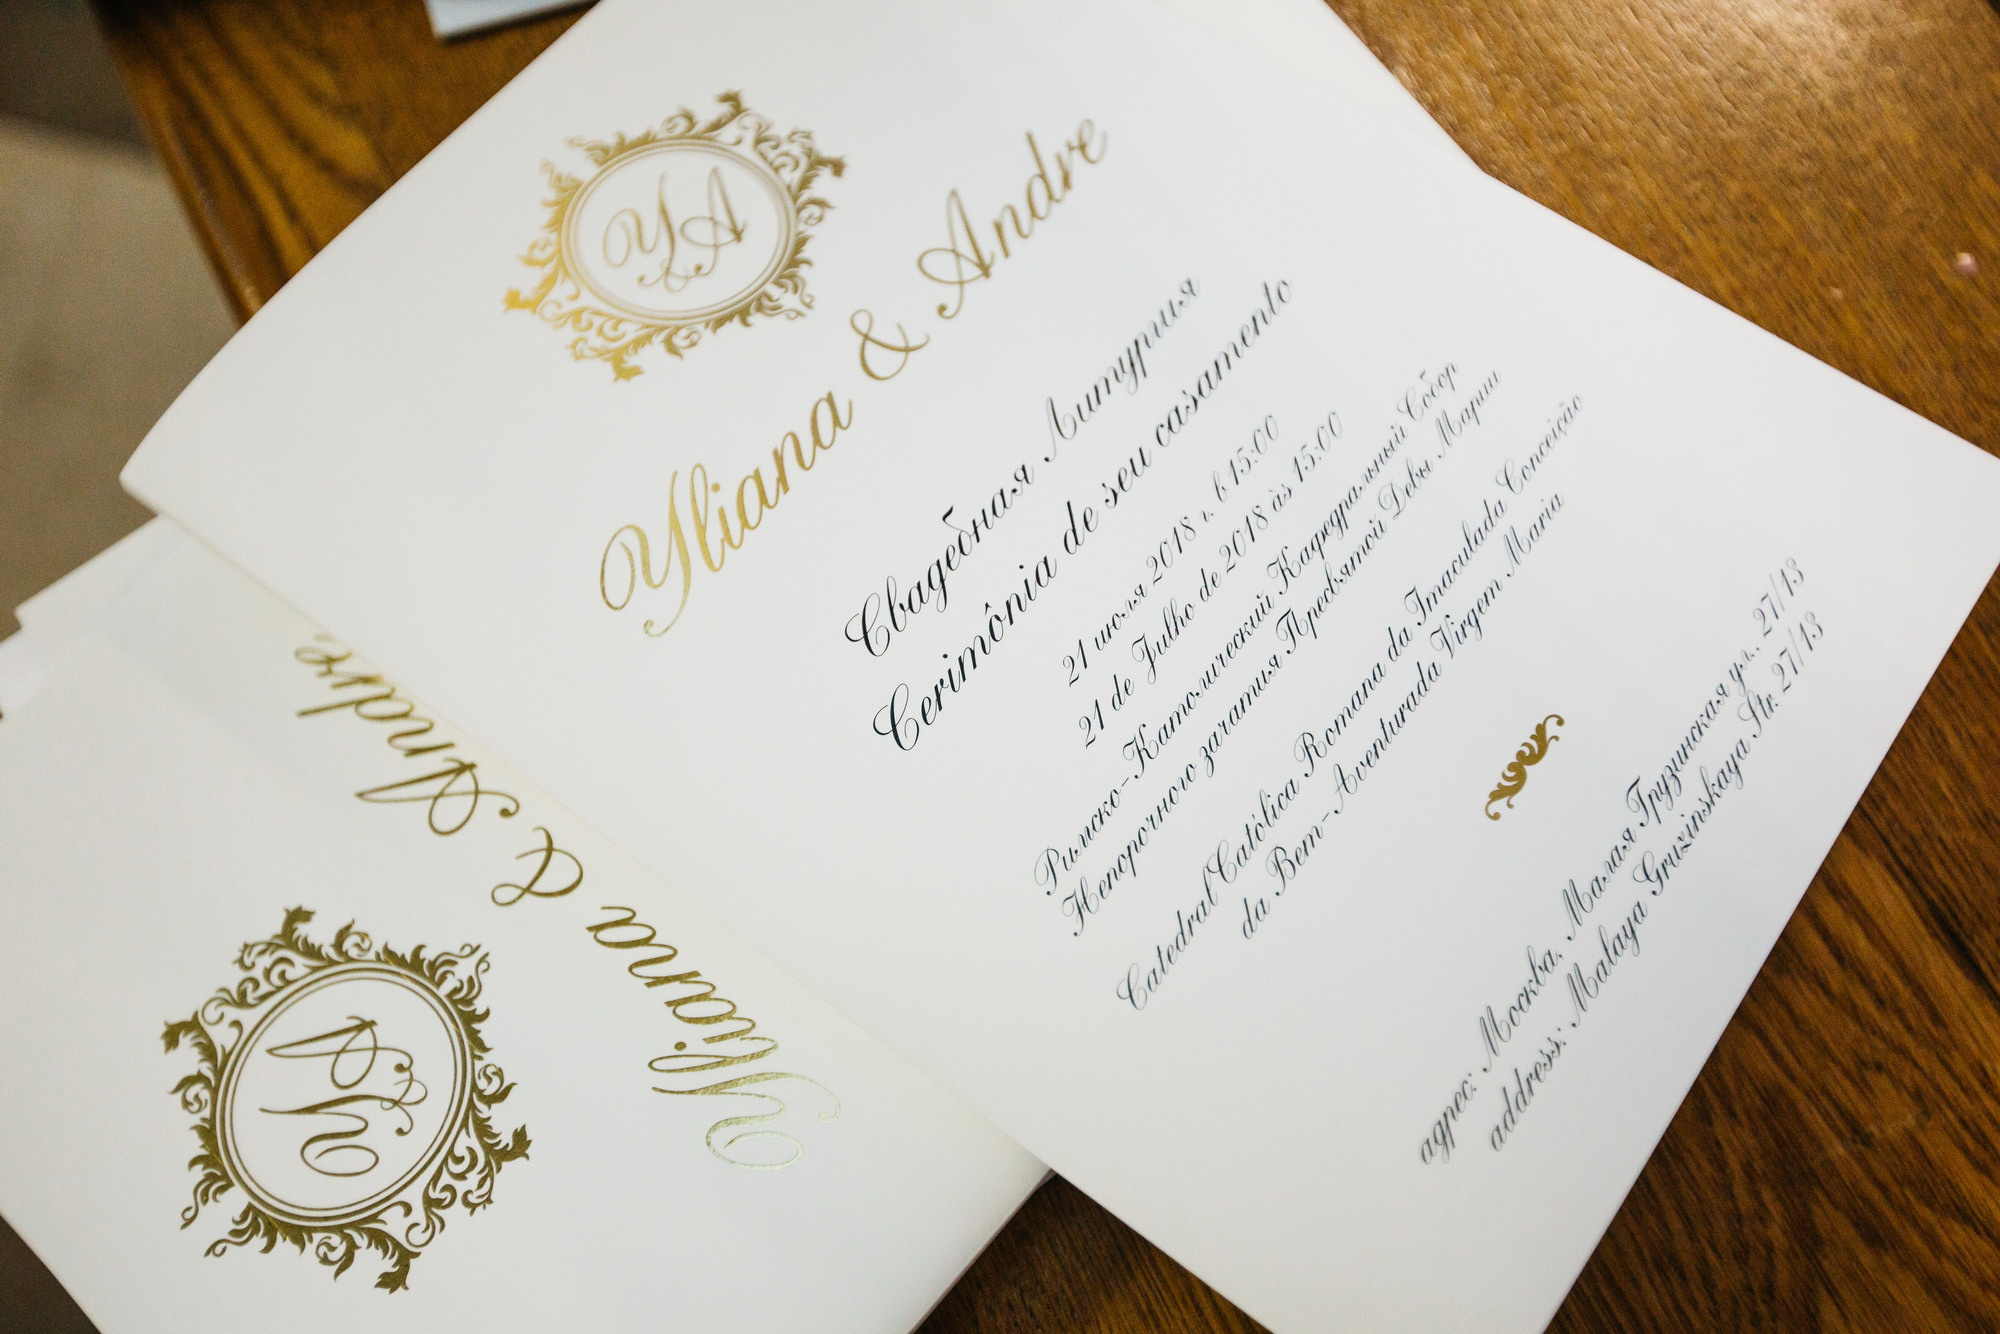 Y & A
Yliana & Andre
Свадебная Литургия
Cerimônia de seu casamento
21 июля 2018 г. в 15:00
21 de Julho de 2018 às 15:00
Римско-Католический Кафедральный Собор
Непорочного зачатия Пресвятой Девы Марии
Catedral Católica Romana da Imaculada Conceição
da Bem-Aventurada Virgem Maria
адрес: Москва, Малая Грузинская ул., 27/13
address: Malaya Gruzinskaya Str. 27/13
Y & A
Yliana & Andre